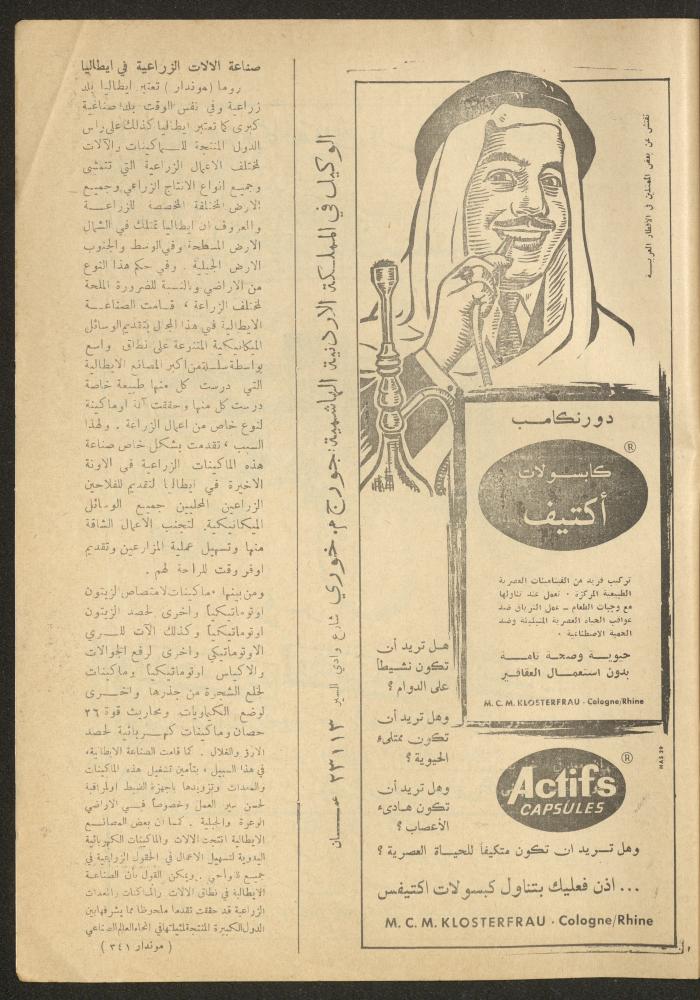 صناعة الالات الزراعية في ايطاليا
روما (موندار) تعتبر ايطاليا بلد
زراعية وفي نفس الوقت بلد صناعية
كبرى كما تعتبر ايطاليا كذلك على راس
الدول المنتجة للماكينات والآلات
لمختلف الاعمال الزراعية التي تتمشى
وجميع انواع الانتاج الزراعي وجميع
الارض المختلفة المخصصة للزراعة
والمعروف ان ايطاليا تمتلك في الشمال
الارض المسطحة وفي الوسط والجنوب
الارض الجبلية . وفي حكم هذا النوع
من الاراضي وبالنسبة للضرورة الملحة
لمختلف الزراعة ، قامت الصناعة
الايطالية في هذا المجال بتقديم الوسائل
الميكانيكية المتنوعة على نطاق واسع
بواسطة سلسلة من اكبر المصانع الايطالية
التي درست كل منها طبيعة خاصة
درست كل منها وحققت آلة او ماكينة
لنوع خاص من اعمال الزراعة . ولهذا
السبب ، تقدمت بشكل خاص صناعة
هذه الماكينات الزراعية في الاونة
الاخيرة في ايطاليا لتقديم للفلاحين
الزراعين المحليين جميع الوسائل
الميكانيكية لتجنب الاعمال الشاقة
منها وتسهيل عملية المزارعين وتقديم
اوفر وقت للراحة لهم .
ومن بينها ، ماكينات لامتصاص الزيتون
اوتوماتيكياً واخرى لحصد الزيتون
اوتوماتيكياً وكذلك الآت للري
الاوتوماتيكي واخرى لرفع الجوالات
والاكياس اوتوماتيكياً وماكينات
لخلع الشجرة من جذرها واخرى
لوضع الكيماويات . ومحاريث قوة ٢٦
حصان وماكينات كهربائية لحصد
الارز والغلال . كما قامت الصناعة الايطالية،
في هذا السبيل ، بتأمين تشغيل هذه الماكينات
والمعدات وتزويدها باجهزة الضبط والمراقبة
لحسن سير العمل وخصوصاً في الاراضي
الوعرة والجبلية . كما ان بعض المصانع
الايطالية انتجت الالات والماكينات الكهربائية
اليدوية لتسهيل الاعمال في الحقول الزراعية في
جميع النواحي . ويمكن القول بأن الصناعة
الايطالية في نطاق الالات والماكينات والمعدات
الزراعية قد حققت تقدما ملحوظا مما يشرفها بين
الدول الكبيرة المنتجة لمثيلاتها في انحاء العالم الصناعي
( موندار ٣٤١ )
الوكيل في المملكة الاردنية الهاشمية: جورج م. خوري شارع وادي السير ٢٣١١٣ عمان
نفتش عن بعض الممثلين في الاقطار العربية
دورنكامب
®
كابسولات
أكتيف
تركيب فريد من الفيتامينات العصرية
الطبيعية المركزة . تعمل عند تناولها
مع وجبات الطعام - عمل الترياق ضد
عواقب الحياة العصرية المثيلة وضد
الحمية الاصطناعية .
حيوية وصحة تامة
بدون استعمال العقاقير
M. C. M. KLOSTERFRAU · Cologne/Rhine
هل تريد أن
تكون نشيطاً
على الدوام ؟
وهل تريد أن
تكون ممتلىء
الحيوية ؟
وهل تريد أن
تكون هادىء
الأعصاب ؟
®
Actifs
CAPSULES
HAS 39
وهل تريد ان تكون متكيفاً للحياة العصرية ؟
... اذن فعليك بتناول كبسولات اكتيفس
M. C. M. KLOSTERFRAU · Cologne/Rhine